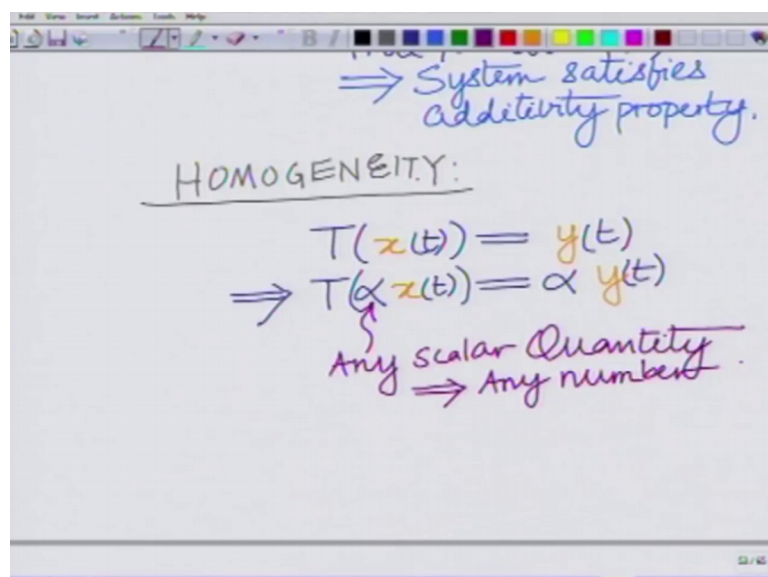 Edit View Insert Actions Tools Help
B I
⇒ System satisfies
additivity property.
HOMOGENEITY:
T(x(t)) = y(t)
⇒ T(α x(t)) = α y(t)
Any scalar Quantity
⇒ Any number.